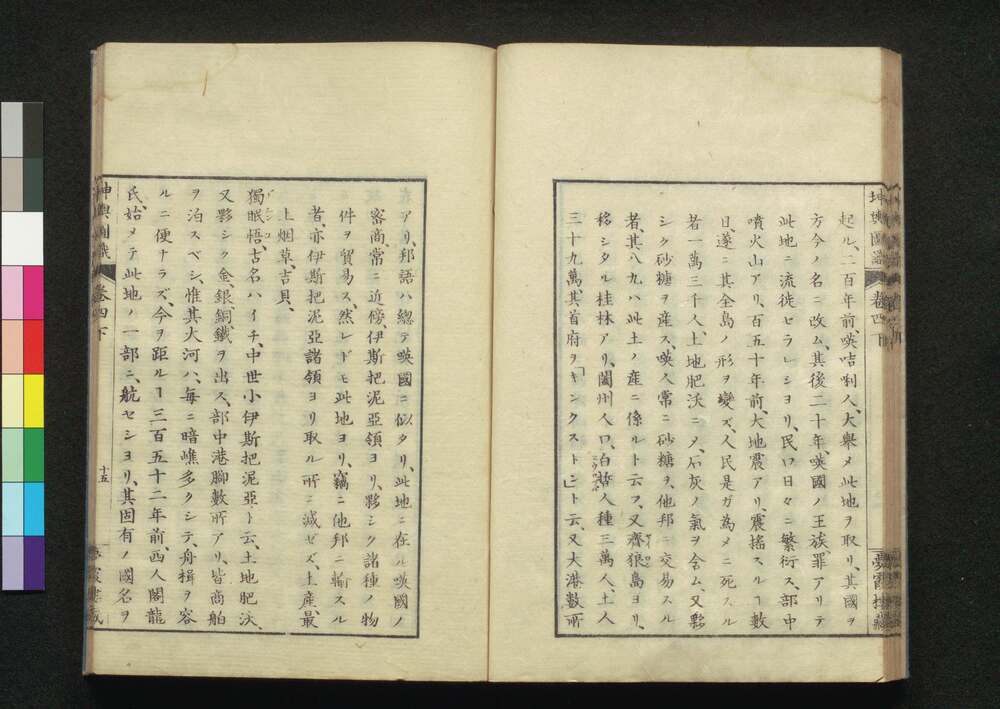 起ル、二百年前、暎咭唎人、大舉〆此地ヲ取リ、其國ヲ
方今ノ名ニ改ム、其後二十年、暎國ノ王族、罪アリテ
此地ニ流徙セラレシヨリ、民口日々ニ繁衍ス、部中
噴火山アリ、百五十年前、大地震アリ、震搖スルヿ數
日、遂ニ其全島ノ形ヲ變ズ、人民是ガ為メニ死スル
者一萬三千人、土地肥沃ニ〆、石灰ノ氣ヲ含ム、又夥
シク砂糖ヲ産ス、暎人常ニ砂糖ヲ、他邦ニ交易スル
者、其八九ハ此土ノ産ニ係ルト云フ、又齋狼島ヨリ、
移シタル桂林アリ、闔州人口、白晢人種三萬人、土人
三十九萬、其首府ヲ「キンクストヽント云、又大港數所
アリ、邦語ハ總テ暎國ニ似タリ、此地ニ在ル暎國ノ
客商、常ニ近傍、伊斯把泥亞領ヨリ、夥シク諸種ノ物
件ヲ貿易ス、然レドモ此地ヨリ、竊ニ他邦ニ輸スル
者、亦伊斯把泥亞諸領ヨリ取ル所ニ減ゼズ、土産、最
上烟草、吉貝、
獨眠悟、古名ハイチ、中世小伊斯把泥亞ト云、土地肥沃、
又夥シク金、銀、銅、鐵ヲ出ス、部中港脚數所アリ、皆商舶
ヲ泊スベシ、惟其大河ハ、毎ニ暗礁多クシテ、舟楫ヲ容
ルニ便ナラズ、今ヲ距ルヿ三百五十二年前、西人閣龍
氏、始メテ此地ノ一部ニ、航セシヨリ、其固有ノ國名ヲ
坤輿圖識
卷四下
十五